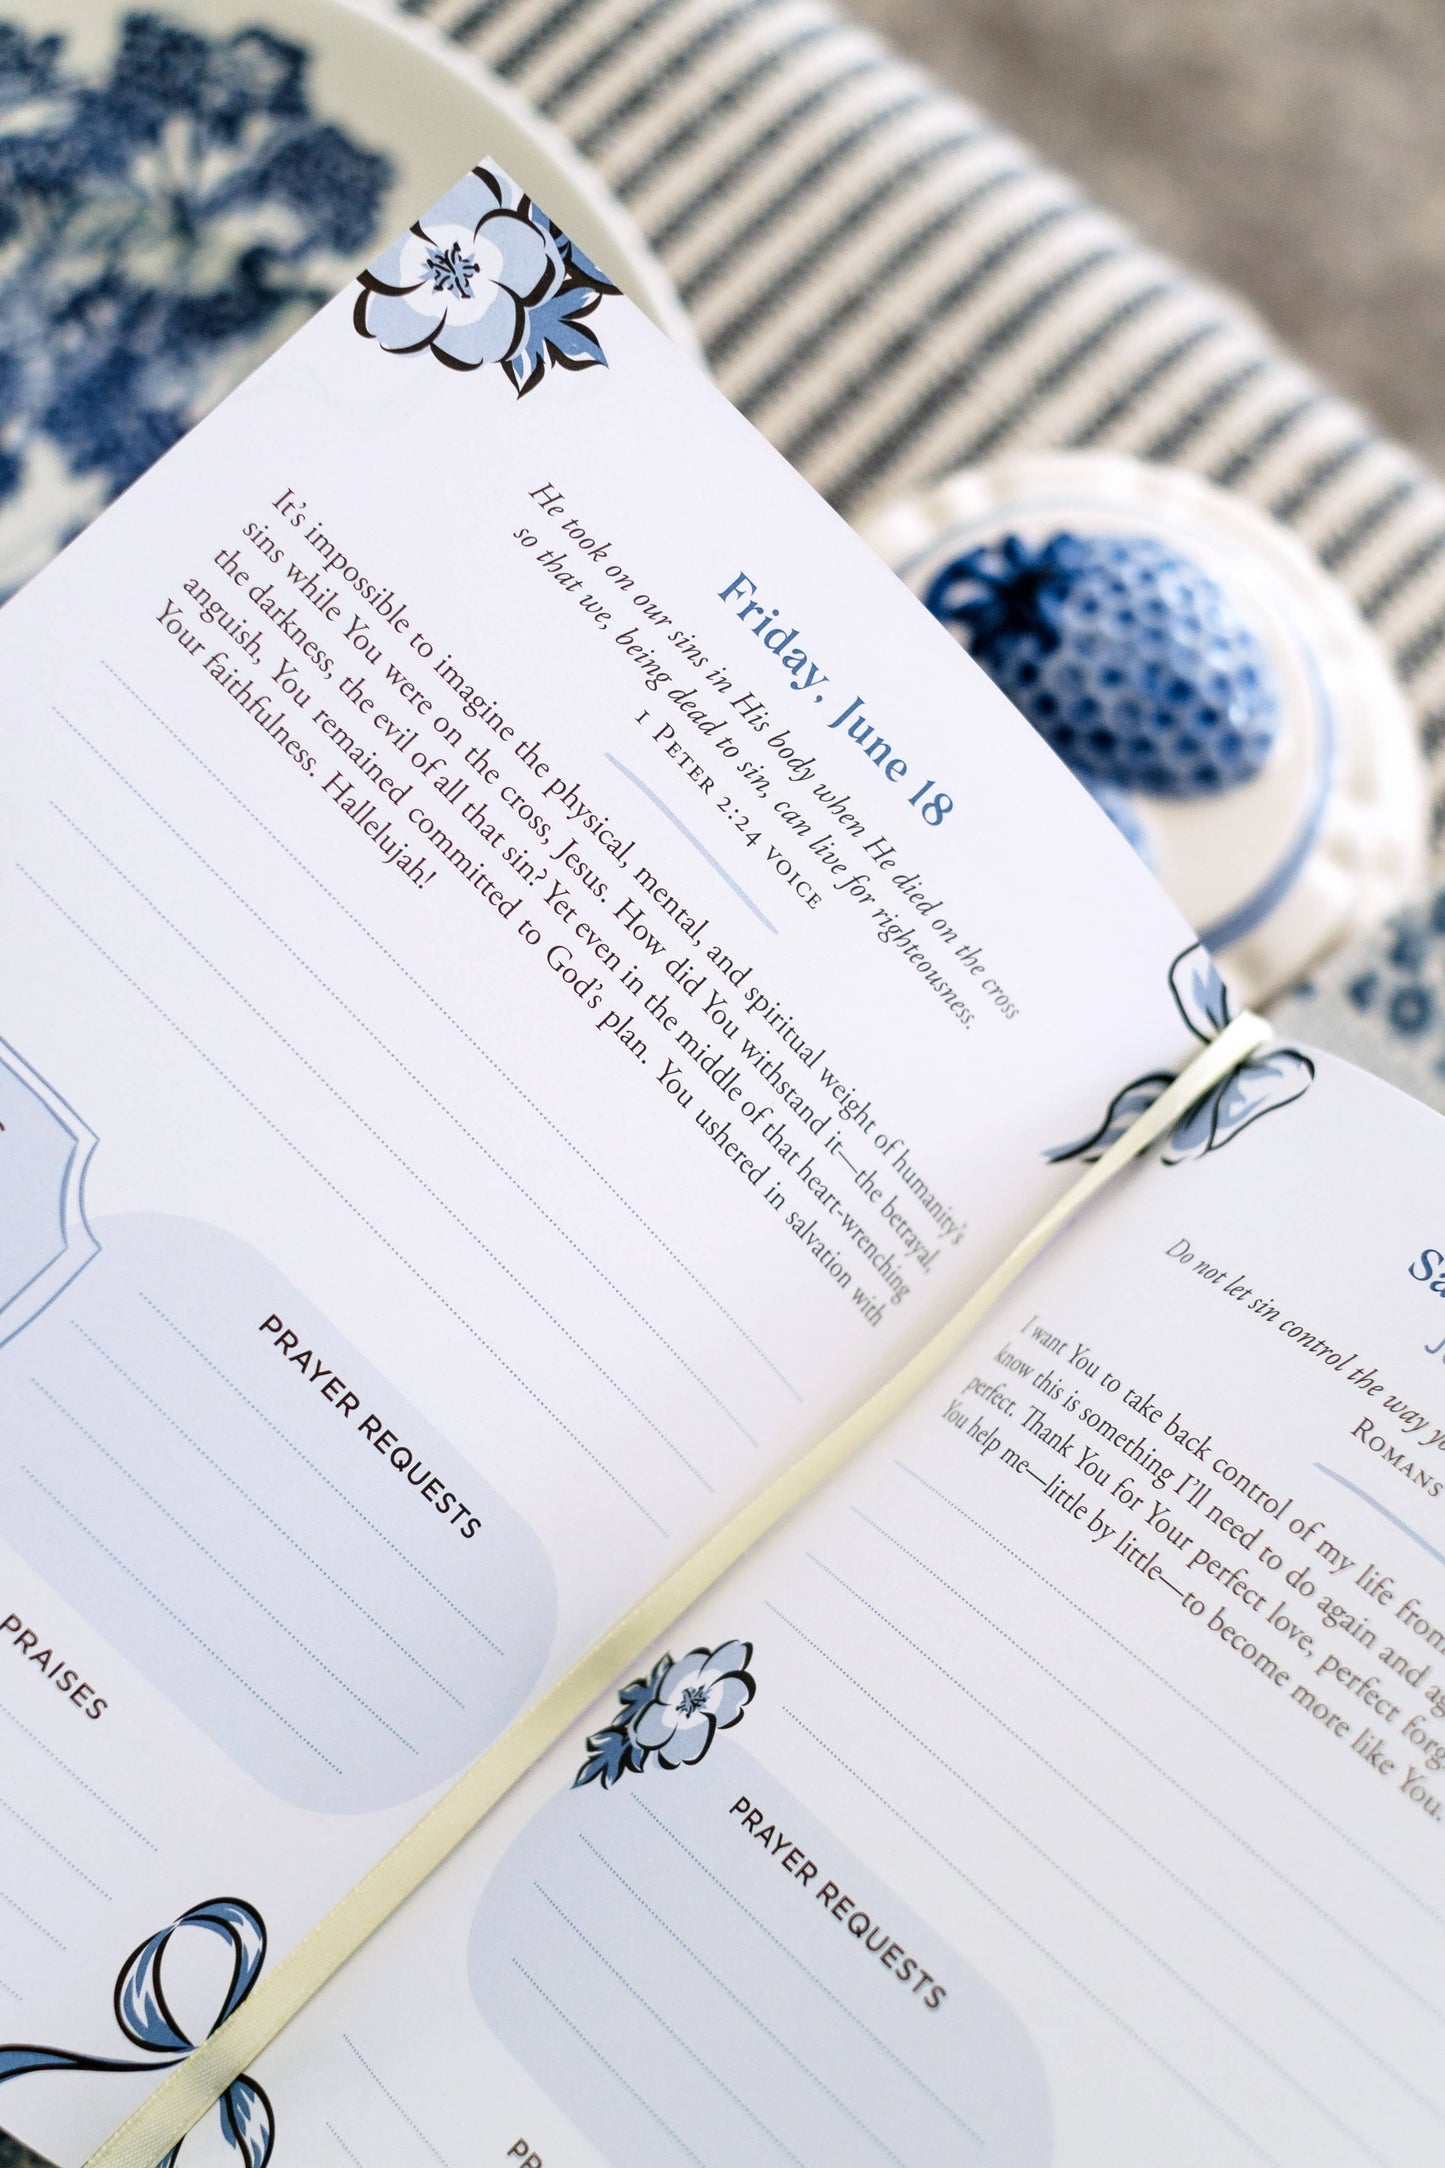 Friday, June 18
He took on our sins in His body when He died on the cross
so that we, being dead to sin, can live for righteousness.
1 PETER 2:24 VOICE
It's impossible to imagine the physical, mental, and spiritual weight of humanity's
sins while You were on the cross, Jesus. How did You withstand it—the betrayal,
the darkness, the evil of all that sin? Yet even in the middle of that heart-wrenching
anguish, You remained committed to God's plan. You ushered in salvation with
Your faithfulness. Hallelujah!
PRAYER REQUESTS
PRAISES
Do not let sin control the way
ROMANS
I want You to take back control of my life from
know this is something I'll need to do again and
perfect. Thank You for Your perfect love, perfect
You help me—little by little—to become more like You.
PRAYER REQUESTS